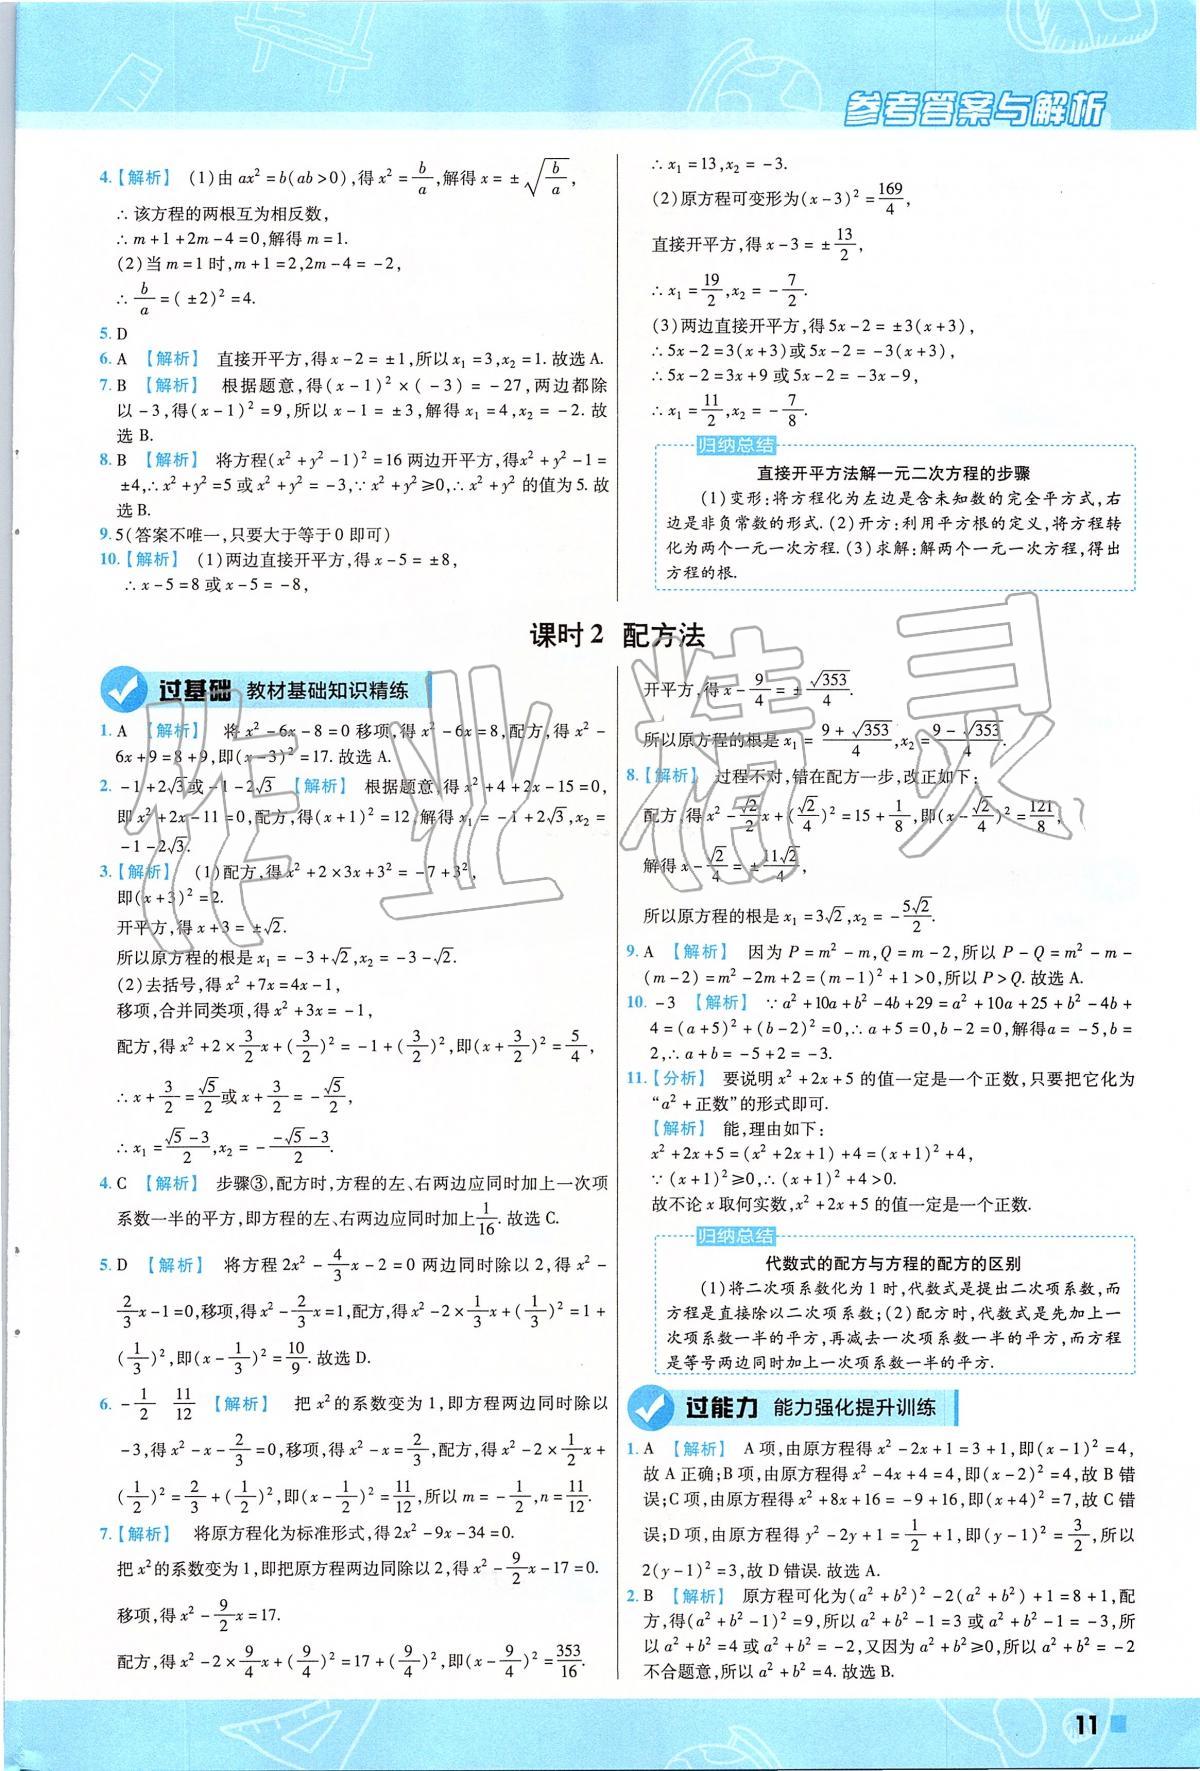 参考答案与解析
4.【解析】 (1)由 ax²=b(ab>0),得 x²=b/a,解得 x=±√(b/a),
∴该方程的两根互为相反数,
∴m+1+2m-4=0,解得 m=1.
(2)当 m=1 时,m+1=2,2m-4=-2,
∴b/a=(±2)²=4.
5. D
6. A 【解析】 直接开平方,得 x-2=±1,所以 x₁=3,x₂=1.故选 A.
7. B 【解析】 根据题意,得(x-1)²×(-3)=-27,两边都除
以-3,得(x-1)²=9,所以 x-1=±3,解得 x₁=4,x₂=-2.故
选 B.
8. B 【解析】 将方程(x²+y²-1)²=16 两边开平方,得x²+y²-1=
±4,∴x²+y²=5 或 x²+y²=-3,∵x²+y²≥0,∴x²+y² 的值为 5.故
选 B.
9. 5(答案不唯一,只要大于等于 0 即可)
10.【解析】 (1)两边直接开平方,得 x-5=±8,
∴x-5=8 或 x-5=-8,
∴x₁=13,x₂=-3.
(2)原方程可变形为(x-3)²=169/4,
直接开平方,得 x-3=±13/2,
∴x₁=19/2,x₂=-7/2.
(3)两边直接开平方,得 5x-2=±3(x+3),
∴5x-2=3(x+3)或 5x-2=-3(x+3),
∴5x-2=3x+9 或 5x-2=-3x-9,
∴x₁=11/2,x₂=-7/8.
归纳总结
直接开平方法解一元二次方程的步骤
(1)变形:将方程化为左边是含未知数的完全平方式,右
边是非负常数的形式.(2)开方:利用平方根的定义,将方程转
化为两个一元一次方程.(3)求解:解两个一元一次方程,得出
方程的根.
课时2 配方法
过基础 教材基础知识精练
1. A 【解析】 将 x²-6x-8=0 移项,得 x²-6x=8,配方,得 x²-
6x+9=8+9,即(x-3)²=17.故选 A.
2. -1+2√3或-1-2√3 【解析】 根据题意,得 x²+4+2x-15=0,
即 x²+2x-11=0,配方,得(x+1)²=12,解得 x₁=-1+2√3,x₂=
-1-2√3.
3.【解析】 (1)配方,得 x²+2×3x+3²=-7+3²,
即(x+3)²=2.
开平方,得 x+3=±√2.
所以原方程的根是 x₁=-3+√2,x₂=-3-√2.
(2)去括号,得 x²+7x=4x-1,
移项,合并同类项,得 x²+3x=-1,
配方,得 x²+2×3/2x+(3/2)²=-1+(3/2)²,即(x+3/2)²=5/4,
∴x+3/2=√5/2或 x+3/2=-√5/2,
∴x₁=(√5-3)/2,x₂=-(-√5-3)/2.
4. C 【解析】 步骤③,配方时,方程的左、右两边应同时加上一次项
系数一半的平方,即方程的左、右两边应同时加上1/16.故选 C.
5. D 【解析】 将方程 2x²-4/3x-2=0 两边同时除以 2,得 x²-
2/3x-1=0,移项,得 x²-2/3x=1,配方,得 x²-2×1/3x+(1/3)²=1+
(1/3)²,即(x-1/3)²=10/9.故选 D.
6. -1/2 11/12 【解析】 把 x²的系数变为 1,即方程两边同时除以
-3,得 x²-x-2/3=0,移项,得 x²-x=2/3,配方,得 x²-2×1/2x+
(1/2)²=2/3+(1/2)²,即(x-1/2)²=11/12,所以 m=-1/2,n=11/12.
7.【解析】 将原方程化为标准形式,得 2x²-9x-34=0.
把 x²的系数变为 1,即把原方程两边同除以 2,得 x²-9/2x-17=0.
移项,得 x²-9/2x=17.
配方,得 x²-2×9/4x+(9/4)²=17+(9/4)²,即(x-9/4)²=353/16.
开平方,得 x-9/4=±√353/4.
所以原方程的根是 x₁=(9+√353)/4,x₂=(9-√353)/4.
8.【解析】 过程不对,错在配方一步,改正如下:
配方,得 x²-√2/2x+(√2/4)²=15+1/8,即(x-√2/4)²=121/8,
解得 x-√2/4=±11√2/4,
所以原方程的根是 x₁=3√2,x₂=-5√2/2.
9. A 【解析】 因为 P=m²-m,Q=m-2,所以 P-Q=m²-m-
(m-2)=m²-2m+2=(m-1)²+1>0,所以 P>Q.故选 A.
10. -3 【解析】 ∵a²+10a+b²-4b+29=a²+10a+25+b²-4b+
4=(a+5)²+(b-2)²=0,∴a+5=0,b-2=0,解得a=-5,b=
2,∴a+b=-5+2=-3.
11.【分析】 要说明 x²+2x+5 的值一定是一个正数,只要把它化为
“a²+正数”的形式即可.
【解析】 能,理由如下:
x²+2x+5=(x²+2x+1)+4=(x+1)²+4,
∵(x+1)²≥0,∴(x+1)²+4>0.
故不论 x 取何实数,x²+2x+5 的值一定是一个正数.
归纳总结
代数式的配方与方程的配方的区别
(1)将二次项系数化为 1 时,代数式是提出二次项系数,而
方程是直接除以二次项系数;(2)配方时,代数式是先加上一
次项系数一半的平方,再减去一次项系数一半的平方,而方程
是等号两边同时加上一次项系数一半的平方.
过能力 能力强化提升训练
1. A 【解析】 A 项,由原方程得 x²-2x+1=3+1,即(x-1)²=4,
故 A 正确;B 项,由原方程得 x²-4x+4=4,即(x-2)²=4,故 B 错
误;C 项,由原方程得 x²+8x+16=-9+16,即(x+4)²=7,故 C 错
误;D 项,由原方程得 y²-2y+1=1/2+1,即(y-1)²=3/2,所以
2(y-1)²=3,故 D 错误.故选 A.
2. B 【解析】 原方程可化为(a²+b²)²-2(a²+b²)+1=8+1,配
方,得(a²+b²-1)²=9,所以 a²+b²-1=3 或 a²+b²-1=-3,所
以 a²+b²=4 或 a²+b²=-2,又因为 a²+b²≥0,所以 a²+b²=-2
不合题意,所以 a²+b²=4.故选 B.
作业精灵
11